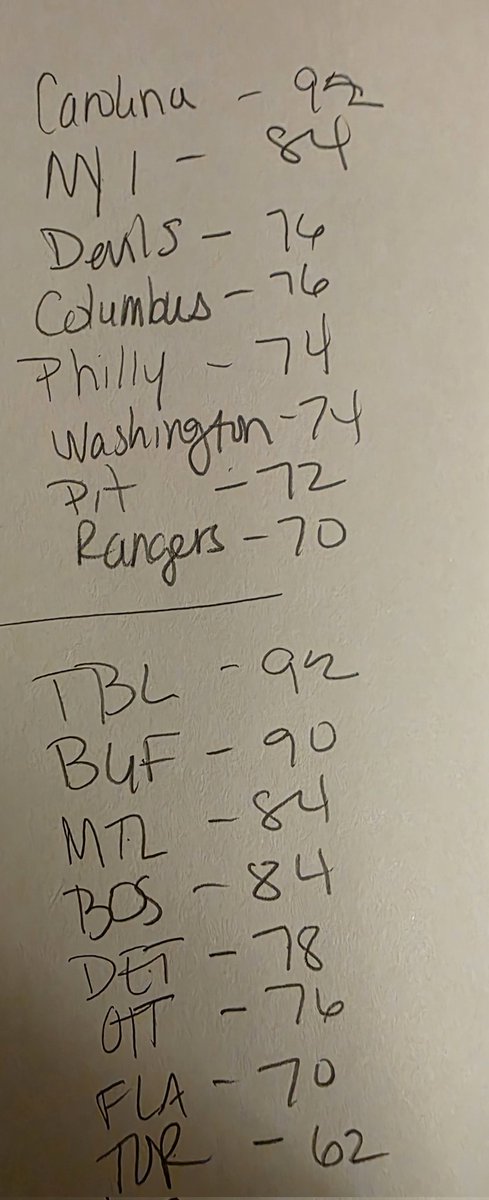 Carolina - 92
NYI - 84
Devils - 76
Columbus - 76
Philly - 74
Washington - 74
Pit - 72
Rangers - 70
TBL - 92
BUF - 90
MTL - 84
BOS - 84
DET - 78
OTT - 76
FLA - 70
TOR - 62